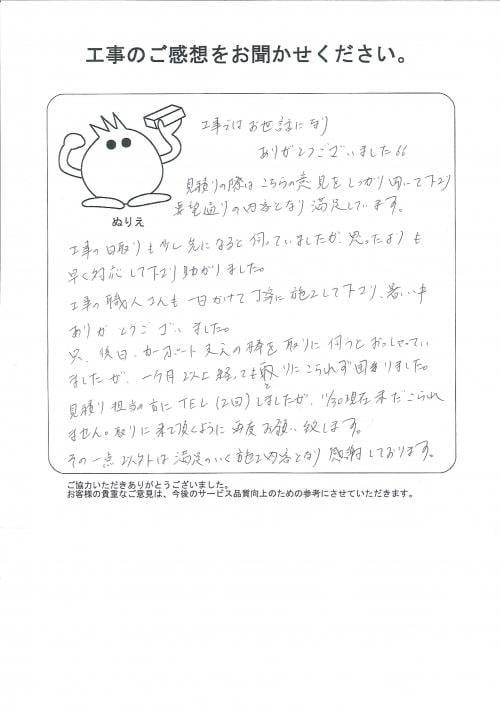 工事のご感想をお聞かせください。
工事ではお世話になり
ありがとうございました。
見積りの際はこちらの意見をしっかり聞いて下さり
要望通りの内容となり満足しています。
ぬりえ
工事の日取りも少し先になると伺っていましたが、思ったよりも
早く対応して下さり助かりました。
工事の職人さんも一日かけて丁寧に施工して下さり、暑い中
ありがとうございました。
只、後日、カーポート支えの棒を取りに伺うとおっしゃってい
ましたが、一ヶ月以上経っても取りにこられず困りました。
見積り担当の方にTEL(2回)しましたが、11/30現在未だこられ
ません。取りに来て頂くように再度お願い致します。
その一点以外は満足のいく施工内容となり感謝しております。
ご協力いただきありがとうございました。
お客様の貴重なご意見は、今後のサービス品質向上のための参考にさせていただきます。